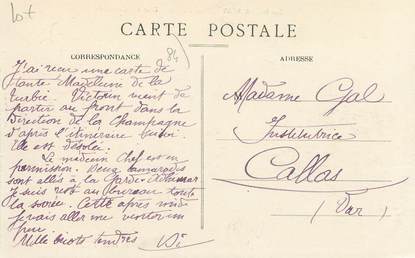 lot
CARTE POSTALE
CORRESPONDANCE
84
ADRESSE
J'ai reçu une carte de
tante Magdeleine de la
Turbie. Victorin vient de
partir au front dans la
Direction de la Champagne
d'après l'itinéraire suivi.
Elle est désolée.
Le médecin Chef est en
permission. Deux camarades
sont allés à la
Je suis resté au bureau toute
la soirée. Cette après midi
je vais aller me
peu.
Mille bises tendres
Madame Gal
Institutrice
Callas
(Var)